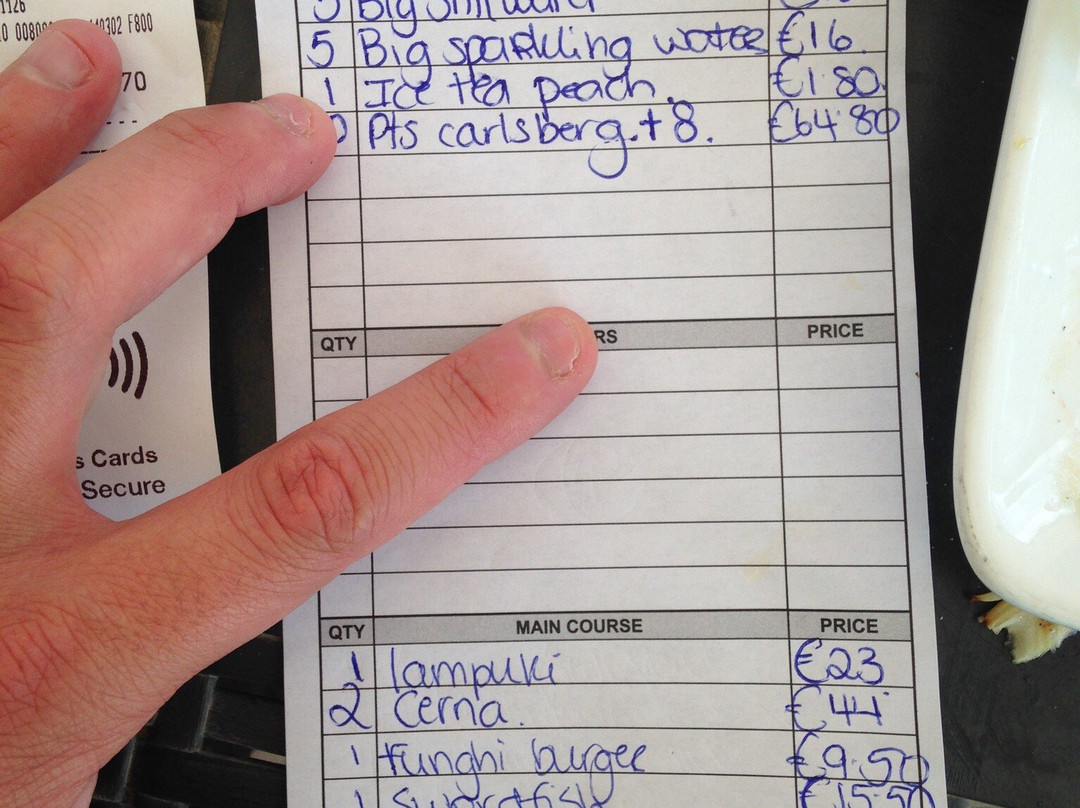 1126
302 F800
70
5 Big sparkling water €16.
1 Ice tea peach. €1.80
Pts carlsberg.+8. €64.80
QTY RS PRICE
s Cards
Secure
QTY MAIN COURSE PRICE
1 lampuki €23
2 Cerna. €44
1 funghi burger €9.50
1 Swordfish €15.50